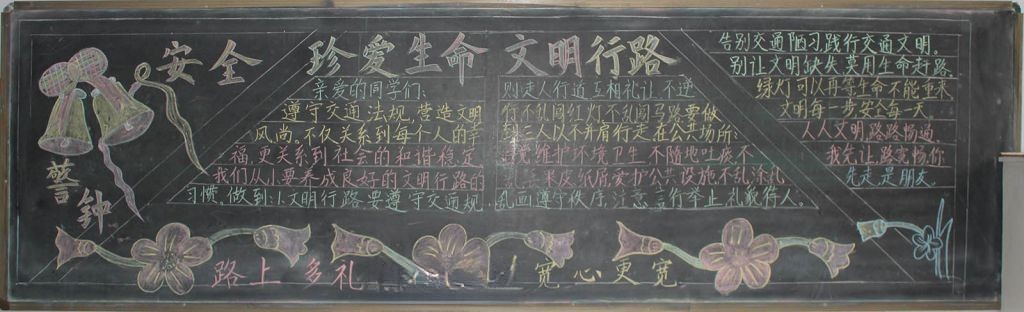 安全 珍爱生命 文明行路
警钟
亲爱的同学们:
遵守交通法规,营造文明
风尚。不仅关系到每个人的幸
福,更关系到社会的和谐稳定
我们从小要养成良好的文明行路的
习惯。做到:1文明行路,要遵守交通规
则走人行道互相礼让不逆
行不乱闯红灯,不乱闯马路要做
到三人以不并肩行走,在公共场所:
自觉维护环境卫生不随地吐痰不
乱丢果皮纸屑,爱护公共设施不乱涂乱
乱画遵守秩序,注意言行举止,礼貌待人。
告别交通陋习,践行交通文明。
别让文明缺失莫用生命赶路
绿灯可以再等生命不能重来
文明每一步安全每一天。
人人文明路路畅通。
我先让路宽畅你
先走是朋友。
路上多礼
宽心更宽